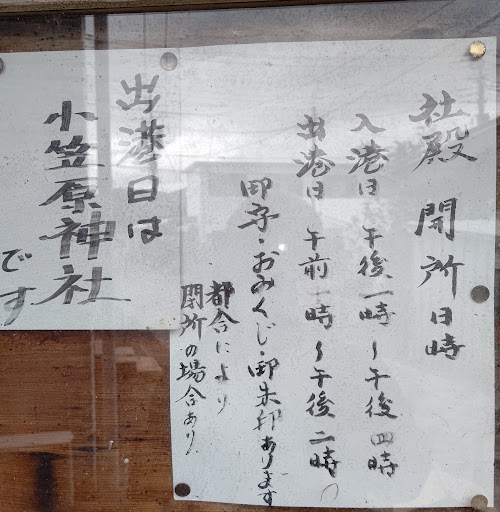 社殿 開所日時
入港日 午後一時〜午後四時
出港日 午前一時〜午後二時
御守・おみくじ・御朱印あります
都合により
閉所の場合あり
出港日は
小笠原神社
です